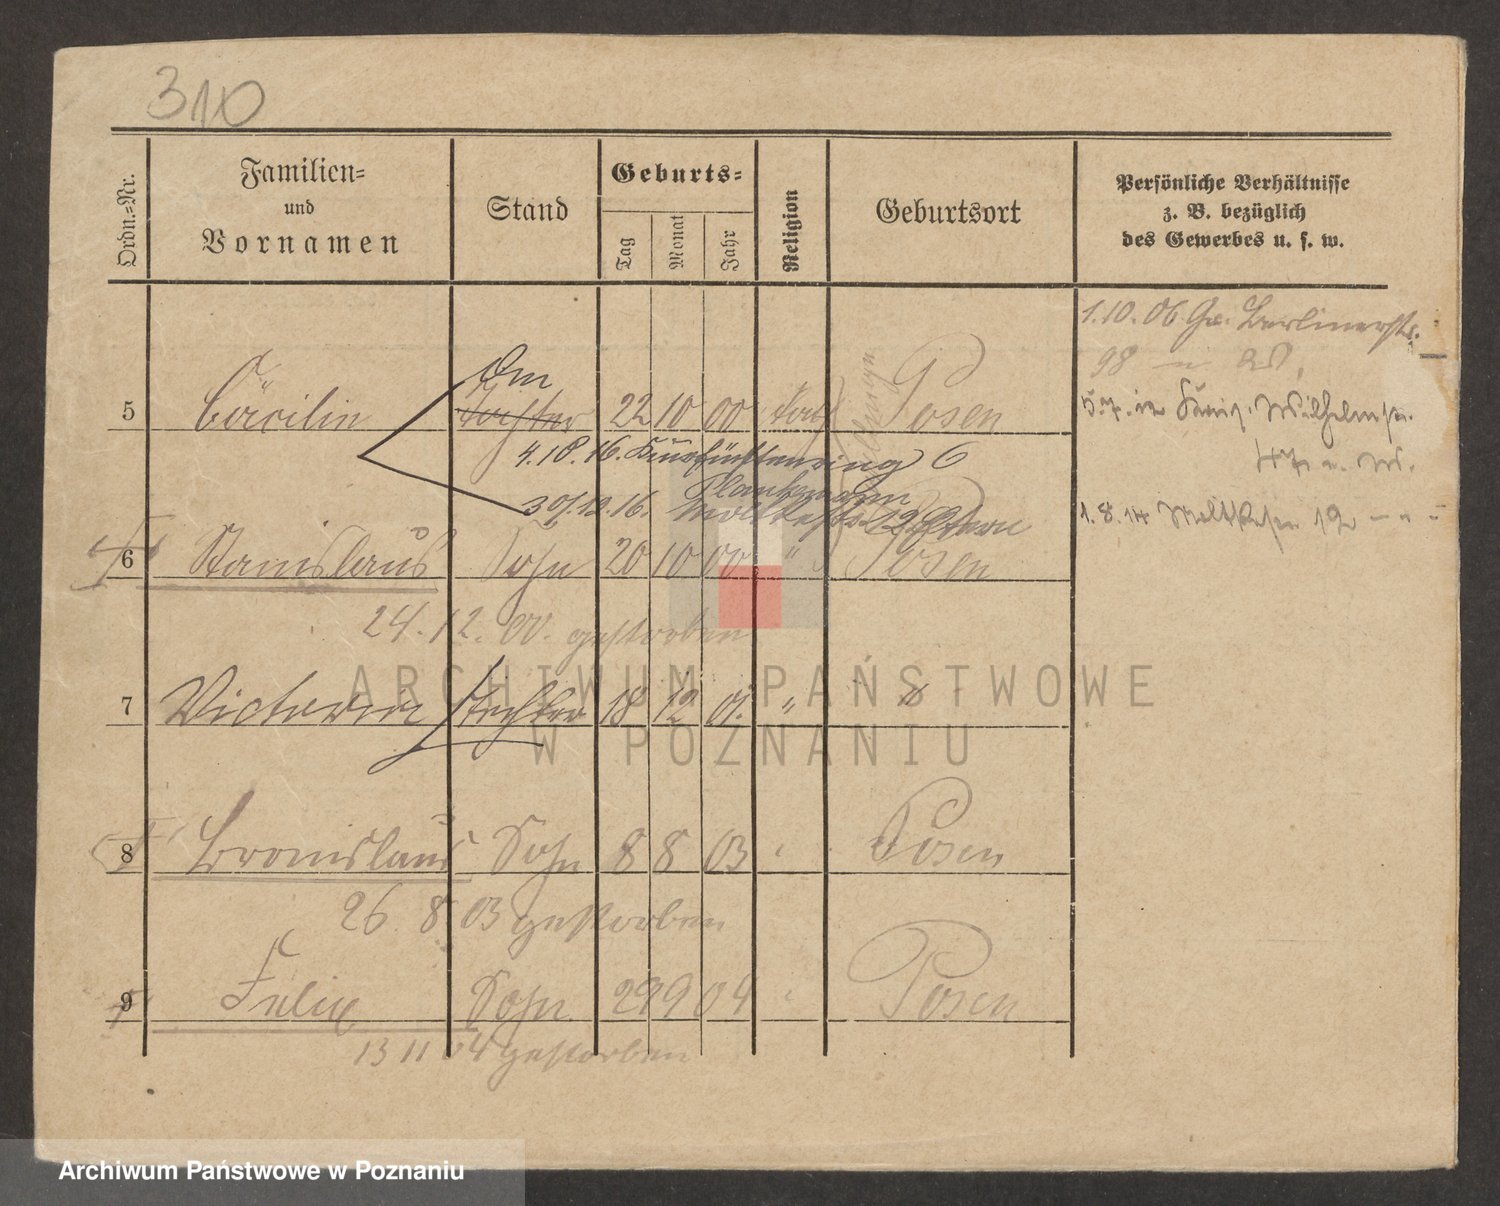 310
Ordn.-Nr.
Familien-
und
Vornamen
Stand
Geburts-
Tag
Monat
Jahr
Religion
Geburtsort
Persönliche Verhältnisse
z. B. bezüglich
des Gewerbes u. s. w.
1.10.06 Gr. Berlinerstr.
98
5 Cäcilie Tochter 22 10 00 kath Posen
4.10.16. Kurfürstenring 6
30.12.16.
1.8.14 Moltkestr. 12
6 Stanislaus Sohn 20 10 00 " Posen
24.12.00. gestorben
7 Victoria Tochter 18 12 01. " "
8 Bronislaus Sohn 8 8 03 Posen
26. 8 03 gestorben
9 Felix Sohn 29 9 04 Posen
13 11 04 gestorben
ARCHIWUM PAŃSTWOWE
W POZNANIU
Archiwum Państwowe w Poznaniu